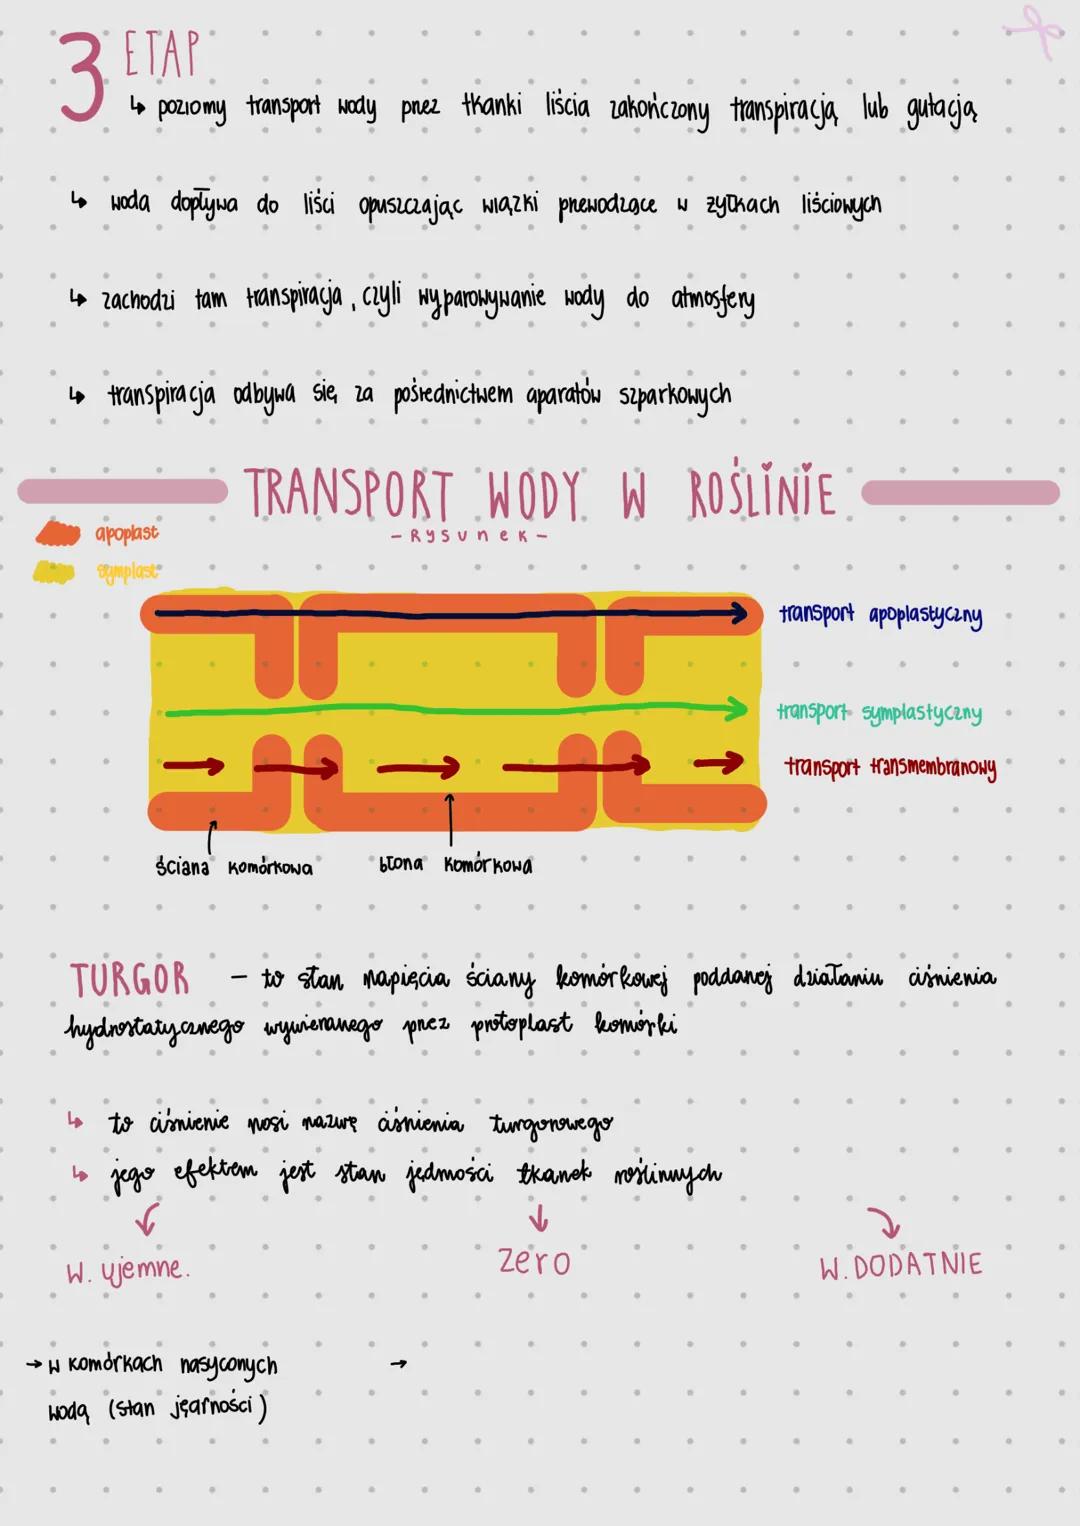 3 ETAP
↳ poziomy transport wody przez tkanki liścia zakończony transpiracją lub gutacją
↳ woda dopływa do liści opuszczając wiązki przewodzące w żyłkach liściowych
↳ zachodzi tam transpiracja, czyli wyparowywanie wody do atmosfery
↳ transpiracja odbywa się za pośrednictwem aparatów szparkowych
TRANSPORT WODY W ROŚLINIE
- Rysunek -
apoplast
symplast
transport apoplastyczny
transport symplastyczny
transport transmembranowy
ściana komórkowa
błona komórkowa
TURGOR - to stan napięcia ściany komórkowej poddanej działaniu ciśnienia
hydrostatycznego wywieranego przez protoplast komórki
↳ to ciśnienie nosi nazwę ciśnienia turgorowego
↳ jego efektem jest stan jędrności tkanek roślinnych
W. ujemne.
Zero
W. DODATNIE
→ w komórkach nasyconych →
wodą (stan jęarności)